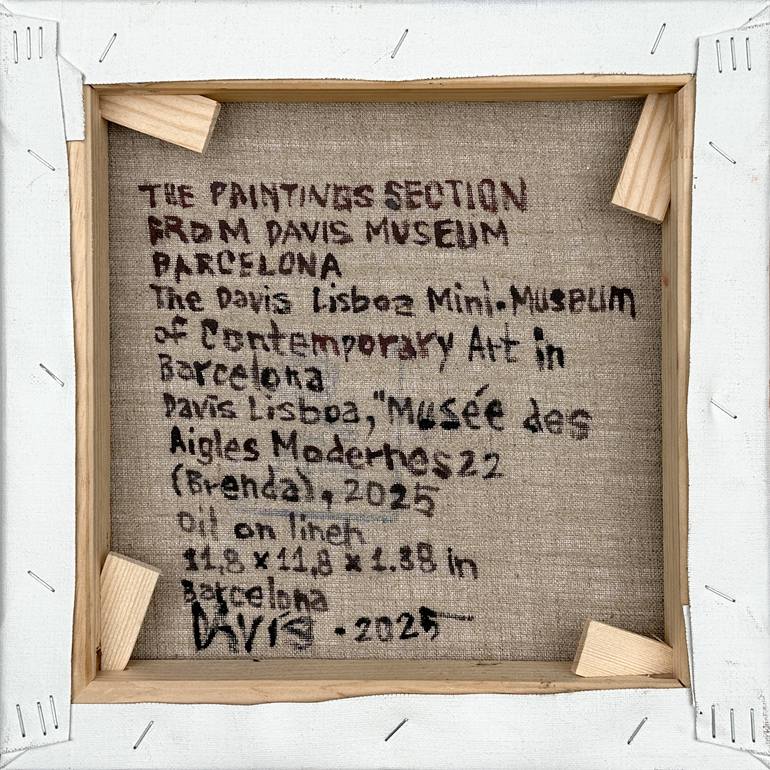 THE PAINTINGS SECTION
FROM DAVIS MUSEUM
BARCELONA
The Davis Lisboa Mini-Museum
of Contemporary Art in
Barcelona
Davis Lisboa, "Musée des
Aigles Modernes 22
(Brenda), 2025
Oil on linen
11,8 x 11,8 x 1.38 in
Barcelona
DAVIS - 2025